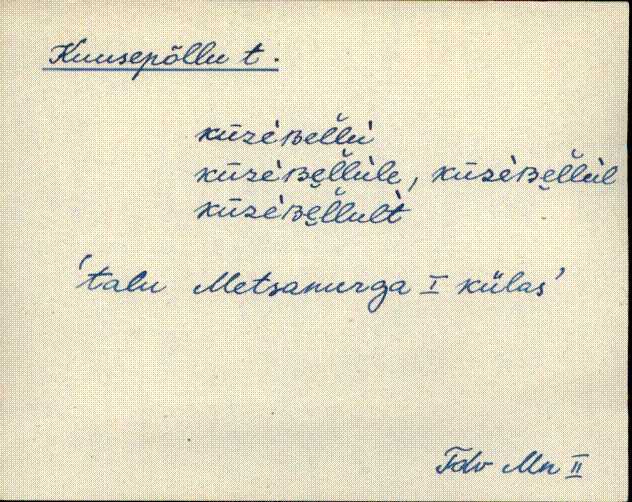 Kuusepõllu t.
kūzèʙel̆l̆ù
kūzèʙe̮l̆l̆ùle, kūzèʙe̮l̆l̆ùl
kūzèʙe̮l̆l̆ult̀
'talu Metsanurga I külas'
Tdv Mn II